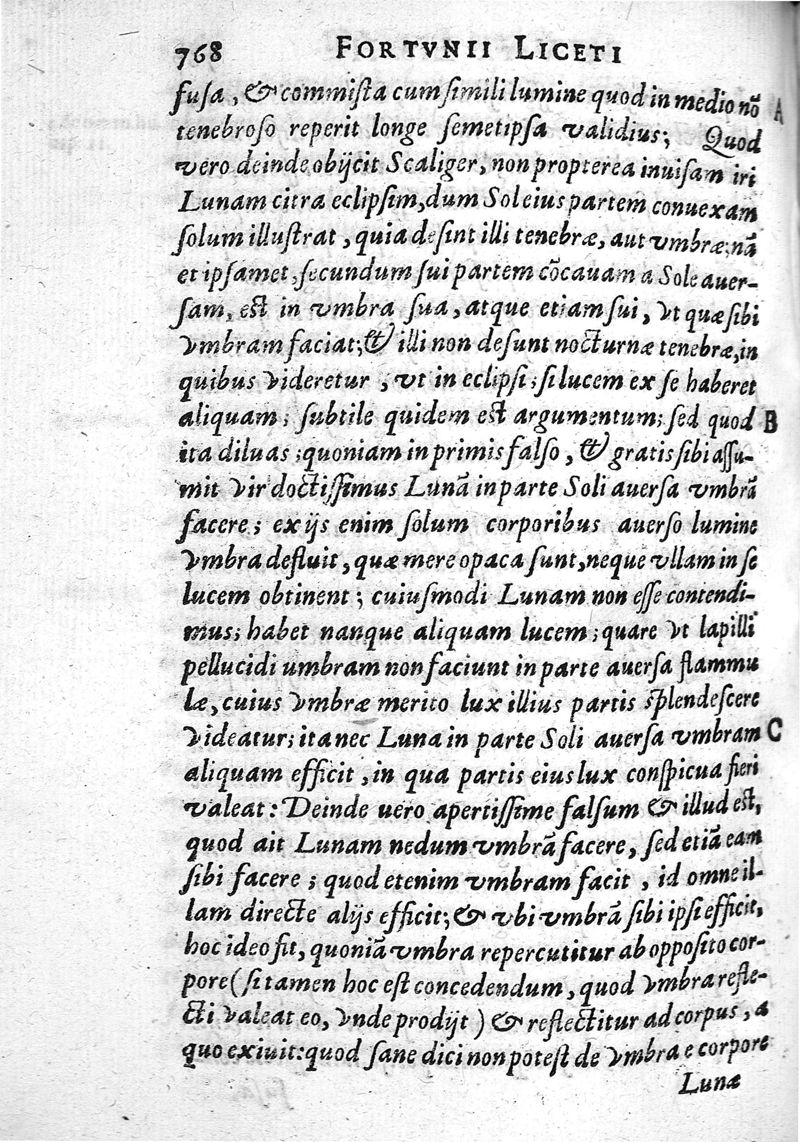 768 FORTVNII LICETI
fusa, & commista cum simili lumine quod in medio nõ A
tenebroso reperit longe semetipsa validius; Quod
vero deinde obijcit Scaliger, non propterea inuisam iri
Lunam citra eclipsim, dum Sol eius partem conuexam
solum illustrat, quia desint illi tenebræ, aut vmbræ; nã
et ipsamet, secundum sui partem cõcauam a Sole auer-
sam, est in vmbra sua, atque etiam sui, vt quæ sibi
vmbram faciat; & illi non desunt nocturnæ tenebræ, in
quibus videretur, vt in eclipsi; si lucem ex se haberet
aliquam; subtile quidem est argumentum; sed quod B
ita diluas; quoniam in primis falso, & gratis sibi assu-
mit vir doctissimus Lunã in parte Soli auersa vmbrã
facere; ex ijs enim solum corporibus auerso lumine
vmbra defluit, quæ mere opaca sunt, neque vllam in se
lucem obtinent; cuiusmodi Lunam non esse contendi-
mus; habet nanque aliquam lucem; quare vt lapilli
pellucidi umbram non faciunt in parte auersa flammu
læ, cuius vmbræ merito lux illius partis splendescere
videatur; ita nec Luna in parte Soli auersa vmbram C
aliquam efficit, in qua partis eius lux conspicua fieri
valeat: Deinde uero apertissime falsum & illud est,
quod ait Lunam nedum vmbrã facere, sed etiã eam
sibi facere; quod etenim vmbram facit, id omne il-
lam directe alijs efficit; & vbi vmbrã sibi ipsi efficit,
hoc ideo fit, quoniã vmbra repercutitur ab opposito cor-
pore (si tamen hoc est concedendum, quod vmbra refle-
cti valeat eo, vnde prodijt) & reflectitur ad corpus, a
quo exiuit: quod sane dici non potest de vmbra e corpore
Lunæ